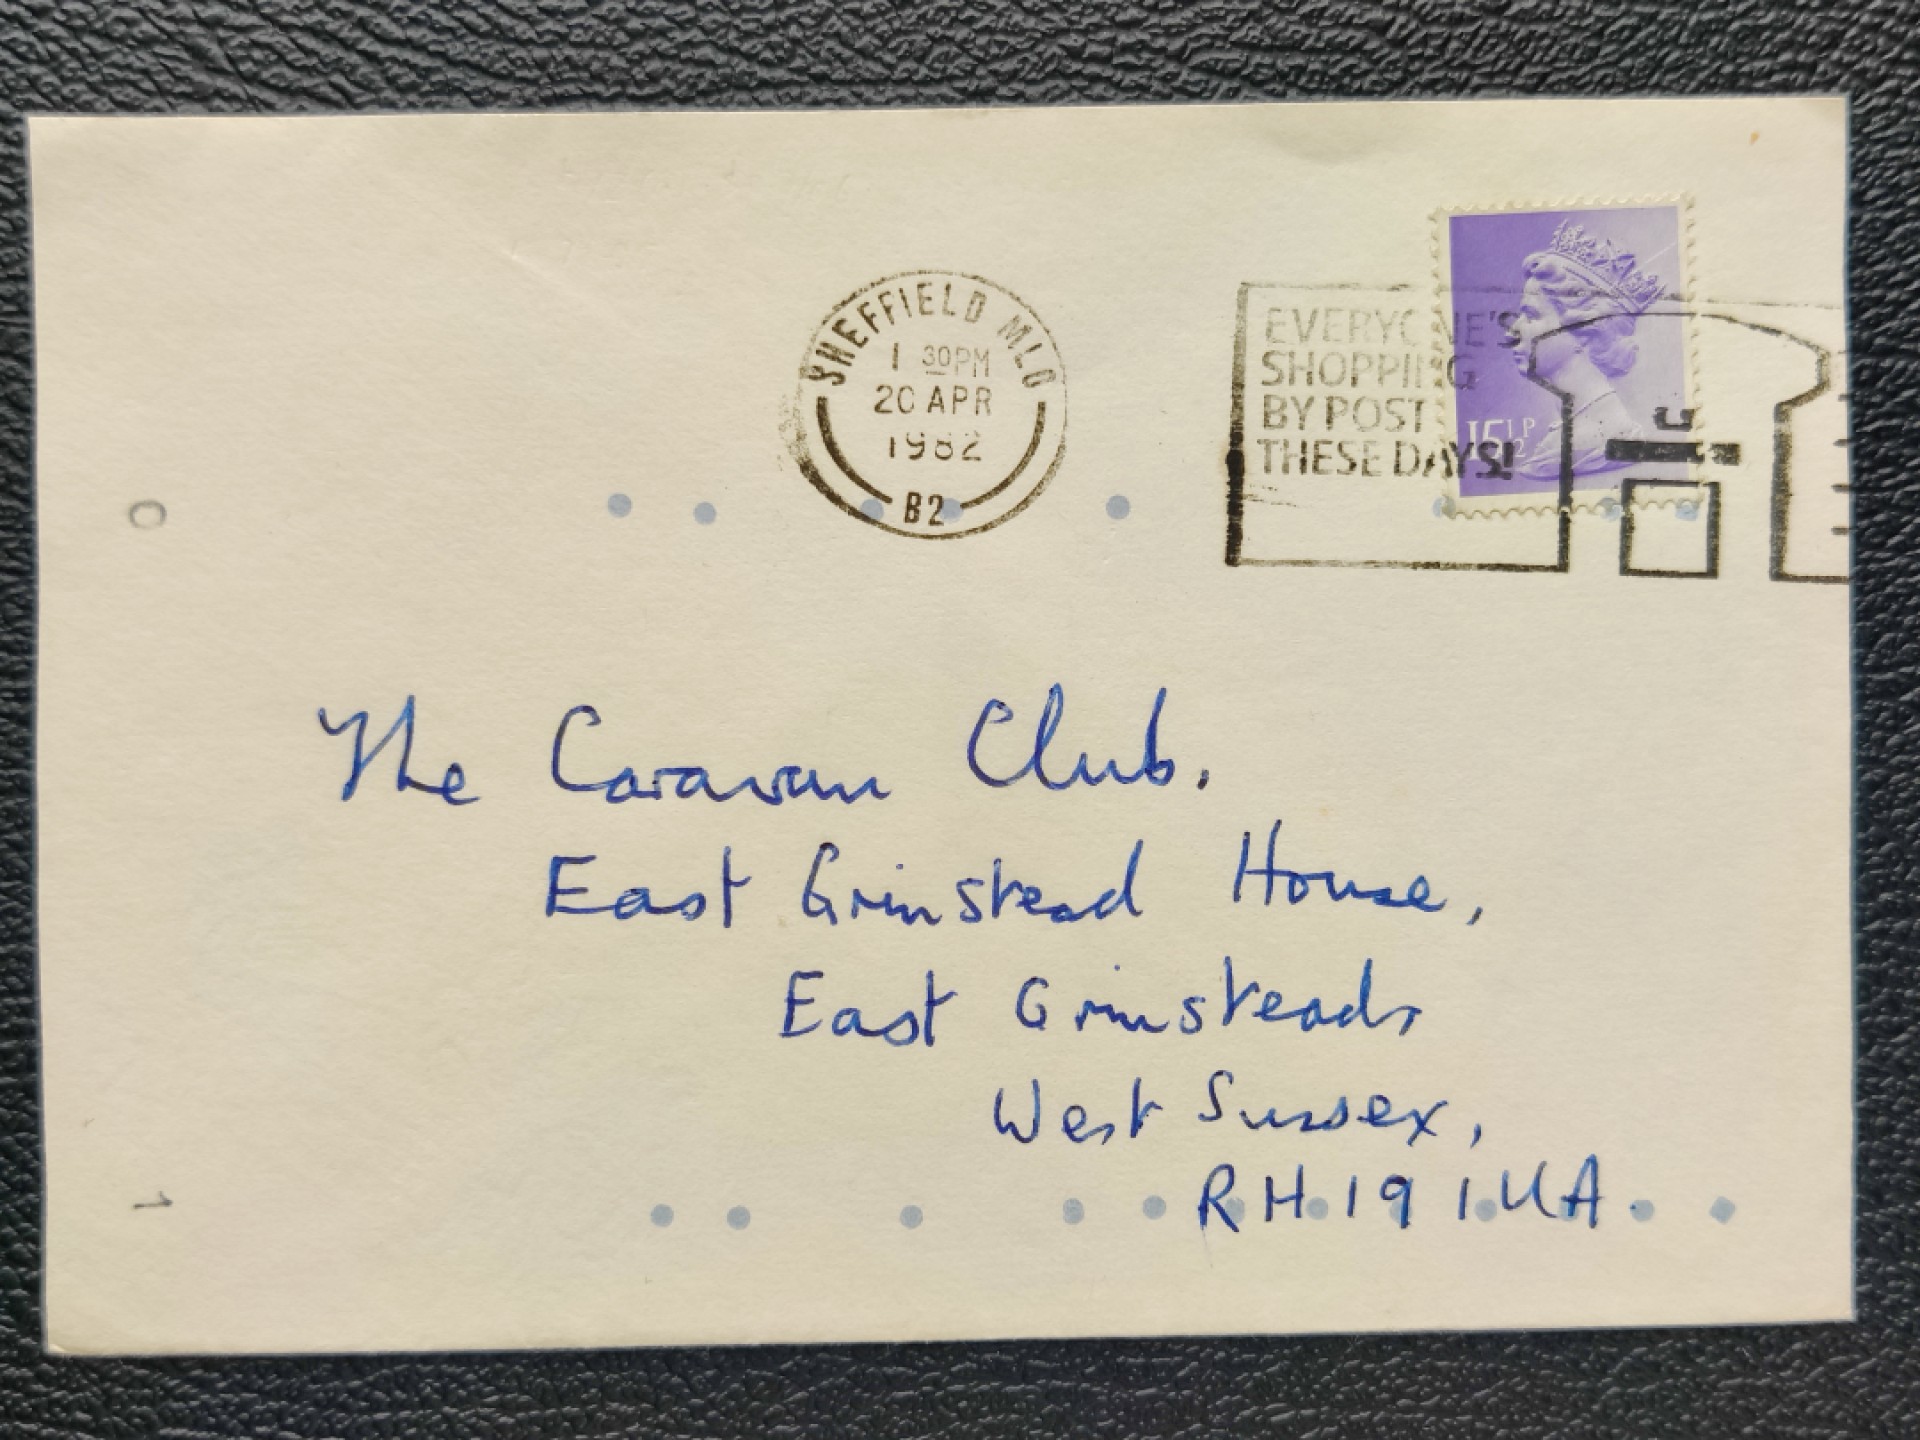 SHEFFIELD MLO
1 30PM
20 APR
1982
B2
EVERYONE'S
SHOPPING
BY POST
THESE DAYS!
15½P
The Caravan Club.
East Grinstead House,
East Grinstead,
West Sussex,
RH19 1UA.